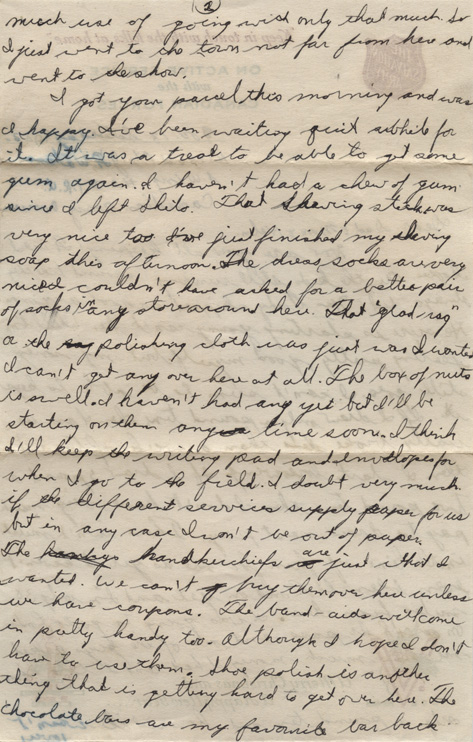 2
much use of going with only that much. So
I just went to the town not far from here and
went to the show.
I got your parcel this morning and was
I happy. I've been waiting quit awhile for
it. It was a treat to be able to get some
gum again. I haven't had a chew of gum
since I left That shaving stick was
very nice too I've just finished my shaving
soap this afternoon. The dress socks are very
nice I couldn't have asked for a better pair
of socks in any store around here. That "glad rag"
or the polishing cloth was just was I wanted
I can't get any over here at all. The box of nuts
is swell. I haven't had any yet but I'll be
starting on them any time soon. I think
I'll keep the writing pad and envelopes for
when I go to the field. I doubt very much
if the different services supply paper for us
but in any case I won't be out of paper.
The handkerchiefs are just what I
wanted. We can't buy them over here unless
we have coupons. The band-aids will come
in pretty handy too. Although I hope I don't
have to use them. Shoe polish is another
thing that is getting hard to get over here. The
chocolate bars are my favorite bar back